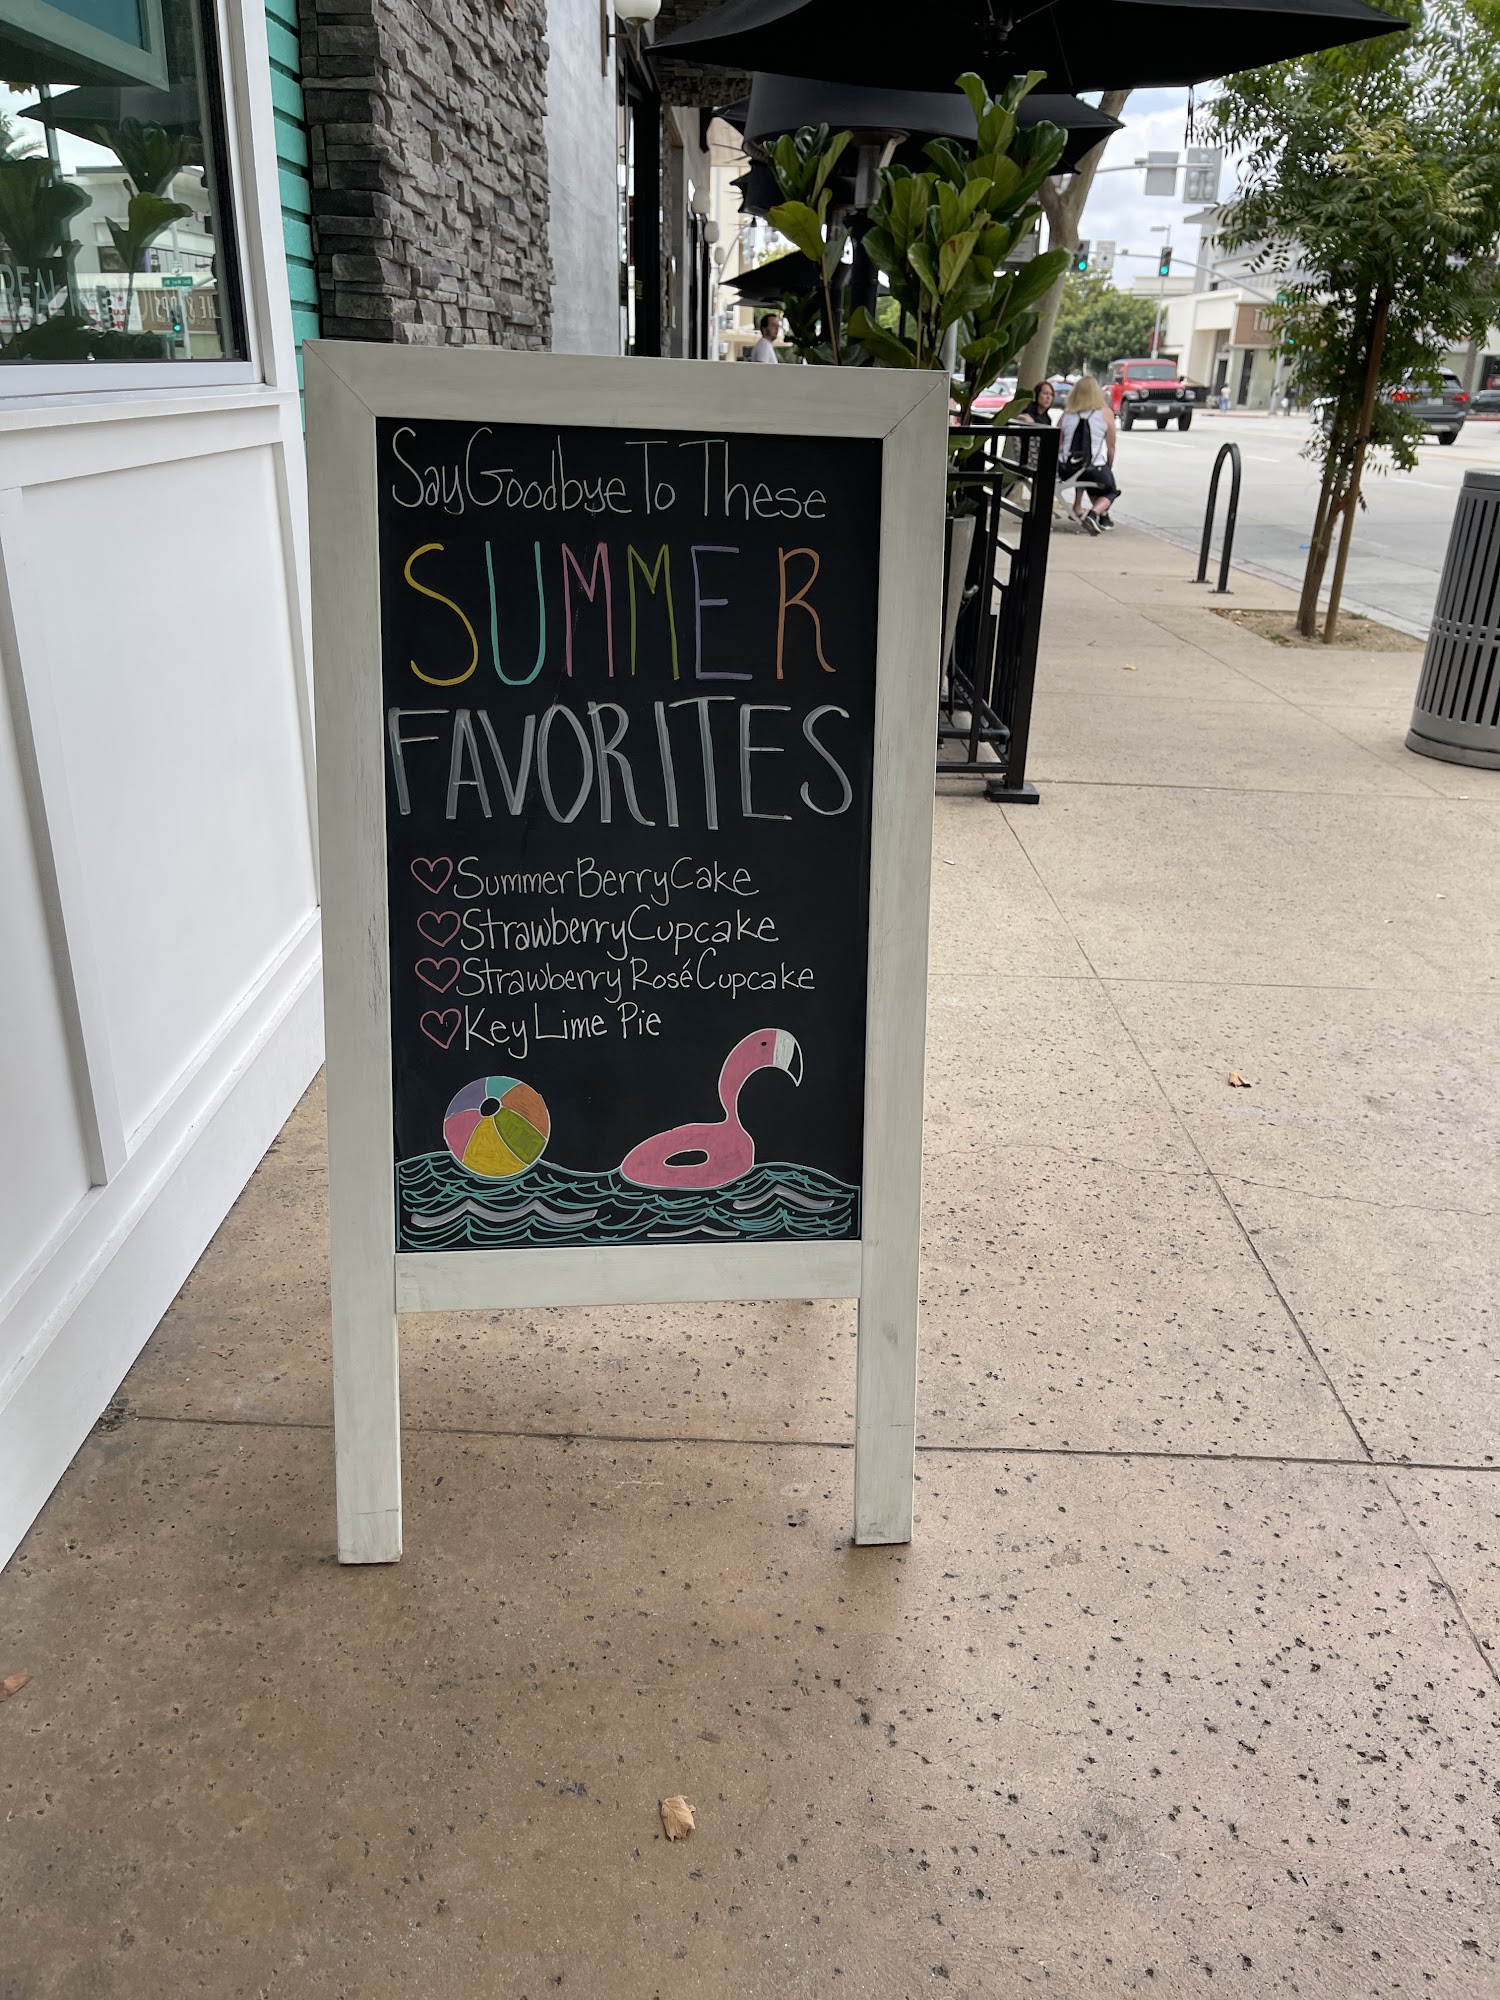 Say Goodbye To These
SUMMER
FAVORITES
Summer Berry Cake
Strawberry Cupcake
Strawberry Rosé Cupcake
Key Lime Pie